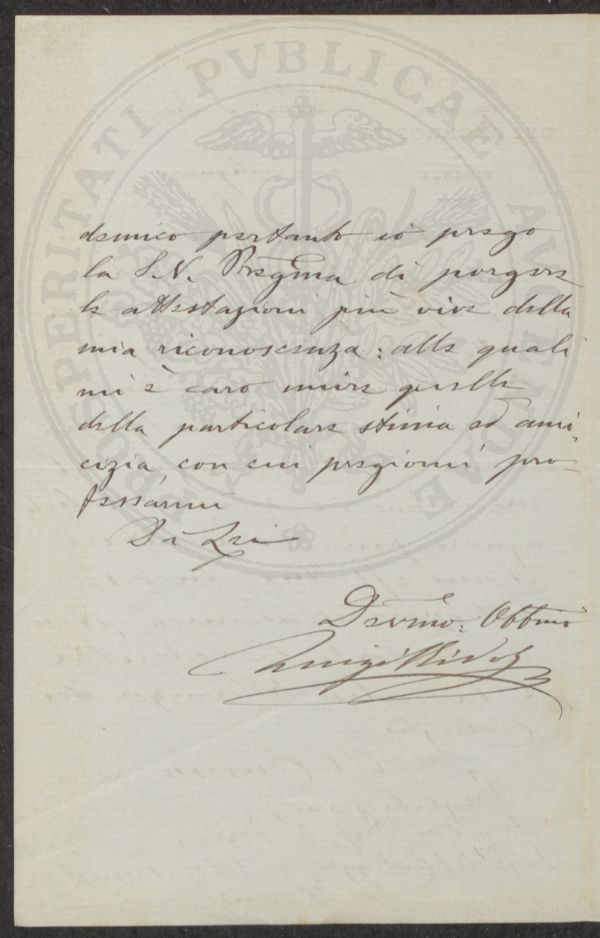 PROSPERITATI PVBLICAE AVGENDAE
demico pertanto io prego
la S. V. Pregma di porgere
le attestazioni più vive della
mia riconoscenza: alle quali
mi è caro unire quelle
della particolare stima ed ami
cizia con cui pregiomi pro-
fessarmi
Di Lei
Devmo: Obbmo
Luigi Ridolfi